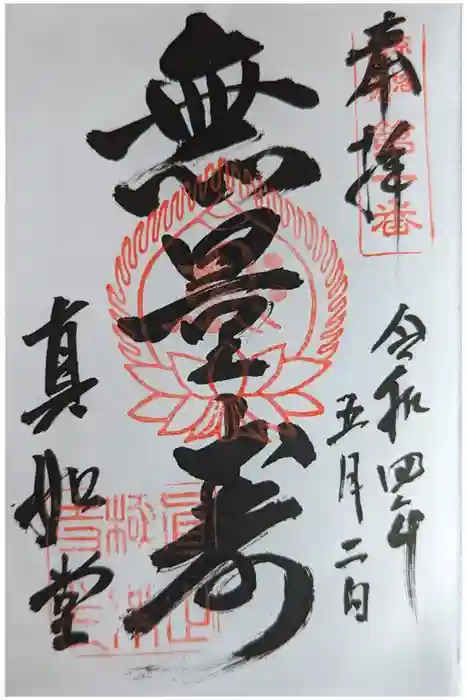 奉拝
第一番
令和四年
五月二日
無量寿
真如堂